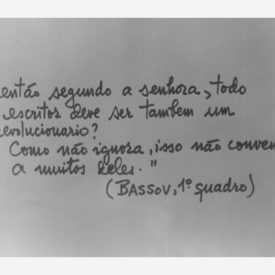 então segundo a senhora, todo
escritor deve ser tambem um
evolucionario?
Como não ignora, isso não conven
a muitos deles."
(BASSOV, 1º quadro)